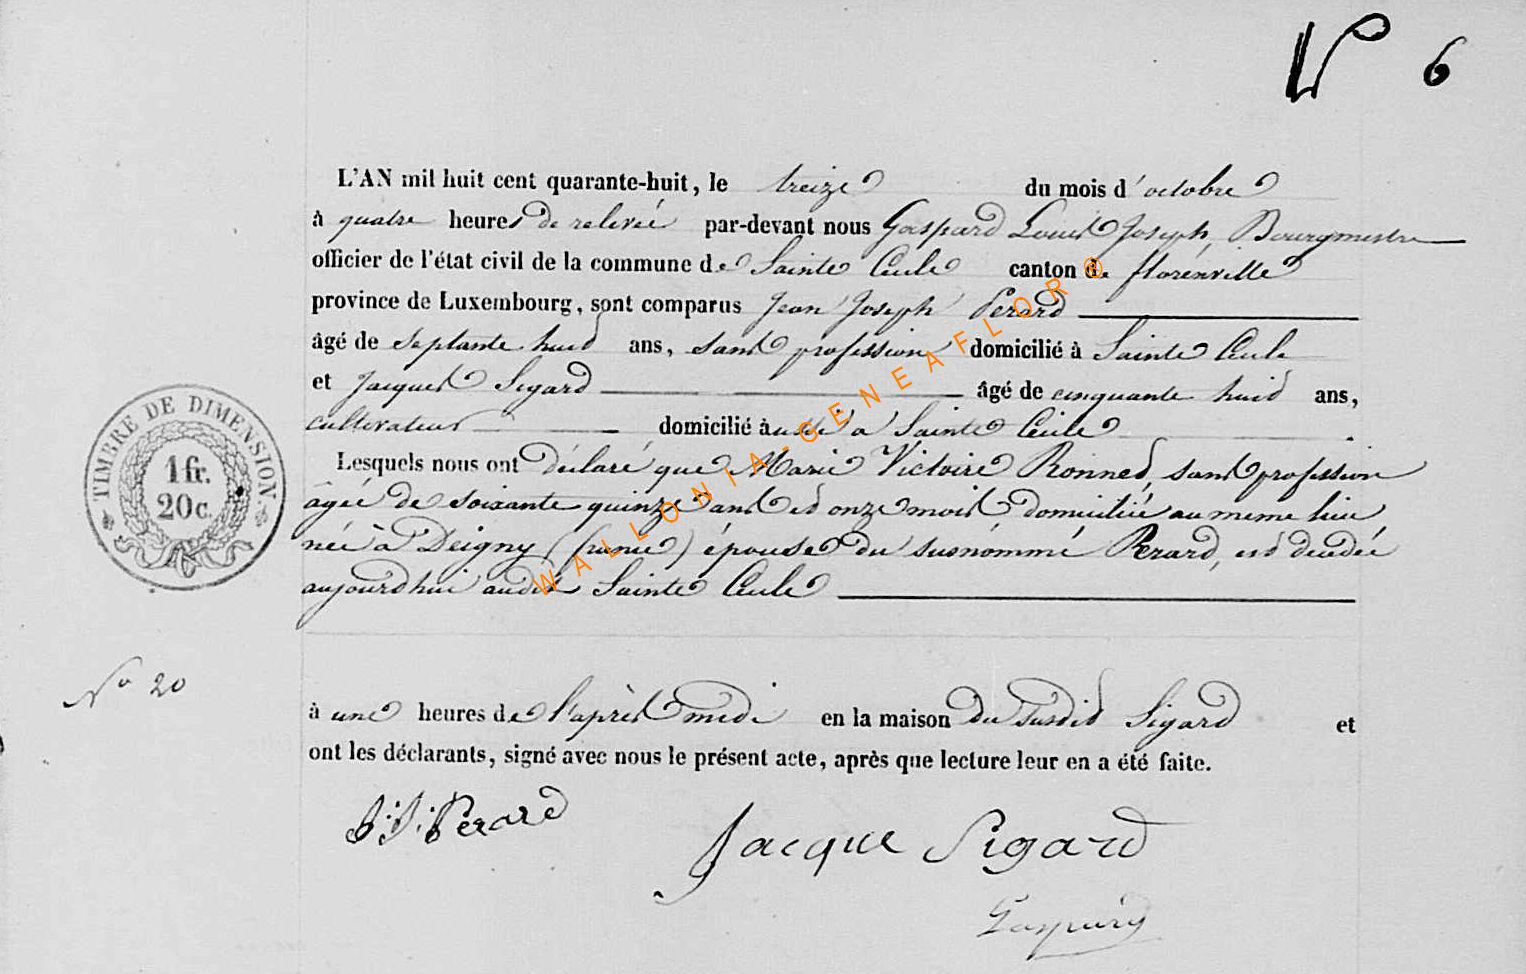 6
L'AN mil huit cent quarante-huit, le treize du mois d'octobre
à quatre heures de relevée par-devant nous Gaspard Louis Joseph, Bourgmestre
officier de l'état civil de la commune de Sainte Cécile canton de florenville
province de Luxembourg, sont comparus Jean Joseph Perard
âgé de septante huit ans, sans profession domicilié à Sainte Cécile
et Jacques Sigard âgé de cinquante huit ans,
cultivateur domicilié à Sainte Cécile
Lesquels nous ont déclaré que Marie Victoire Ronned, sans profession
âgée de soixante quinze ans et onze mois domiciliée au meme lieu
née à Deigny (france) épouse du susnommé Perard, est décédée
aujourd'hui audit Sainte Cécile
TIMBRE DE DIMENSION.
1 fr.
20 c.
No 20
à une heures de l'après midi en la maison du susdit Sigard et
ont les déclarants, signé avec nous le présent acte, après que lecture leur en a été faite.
J. J. Perard
Jacque Sigard
Gaspard
WALLONIA-GENEAFLOR®